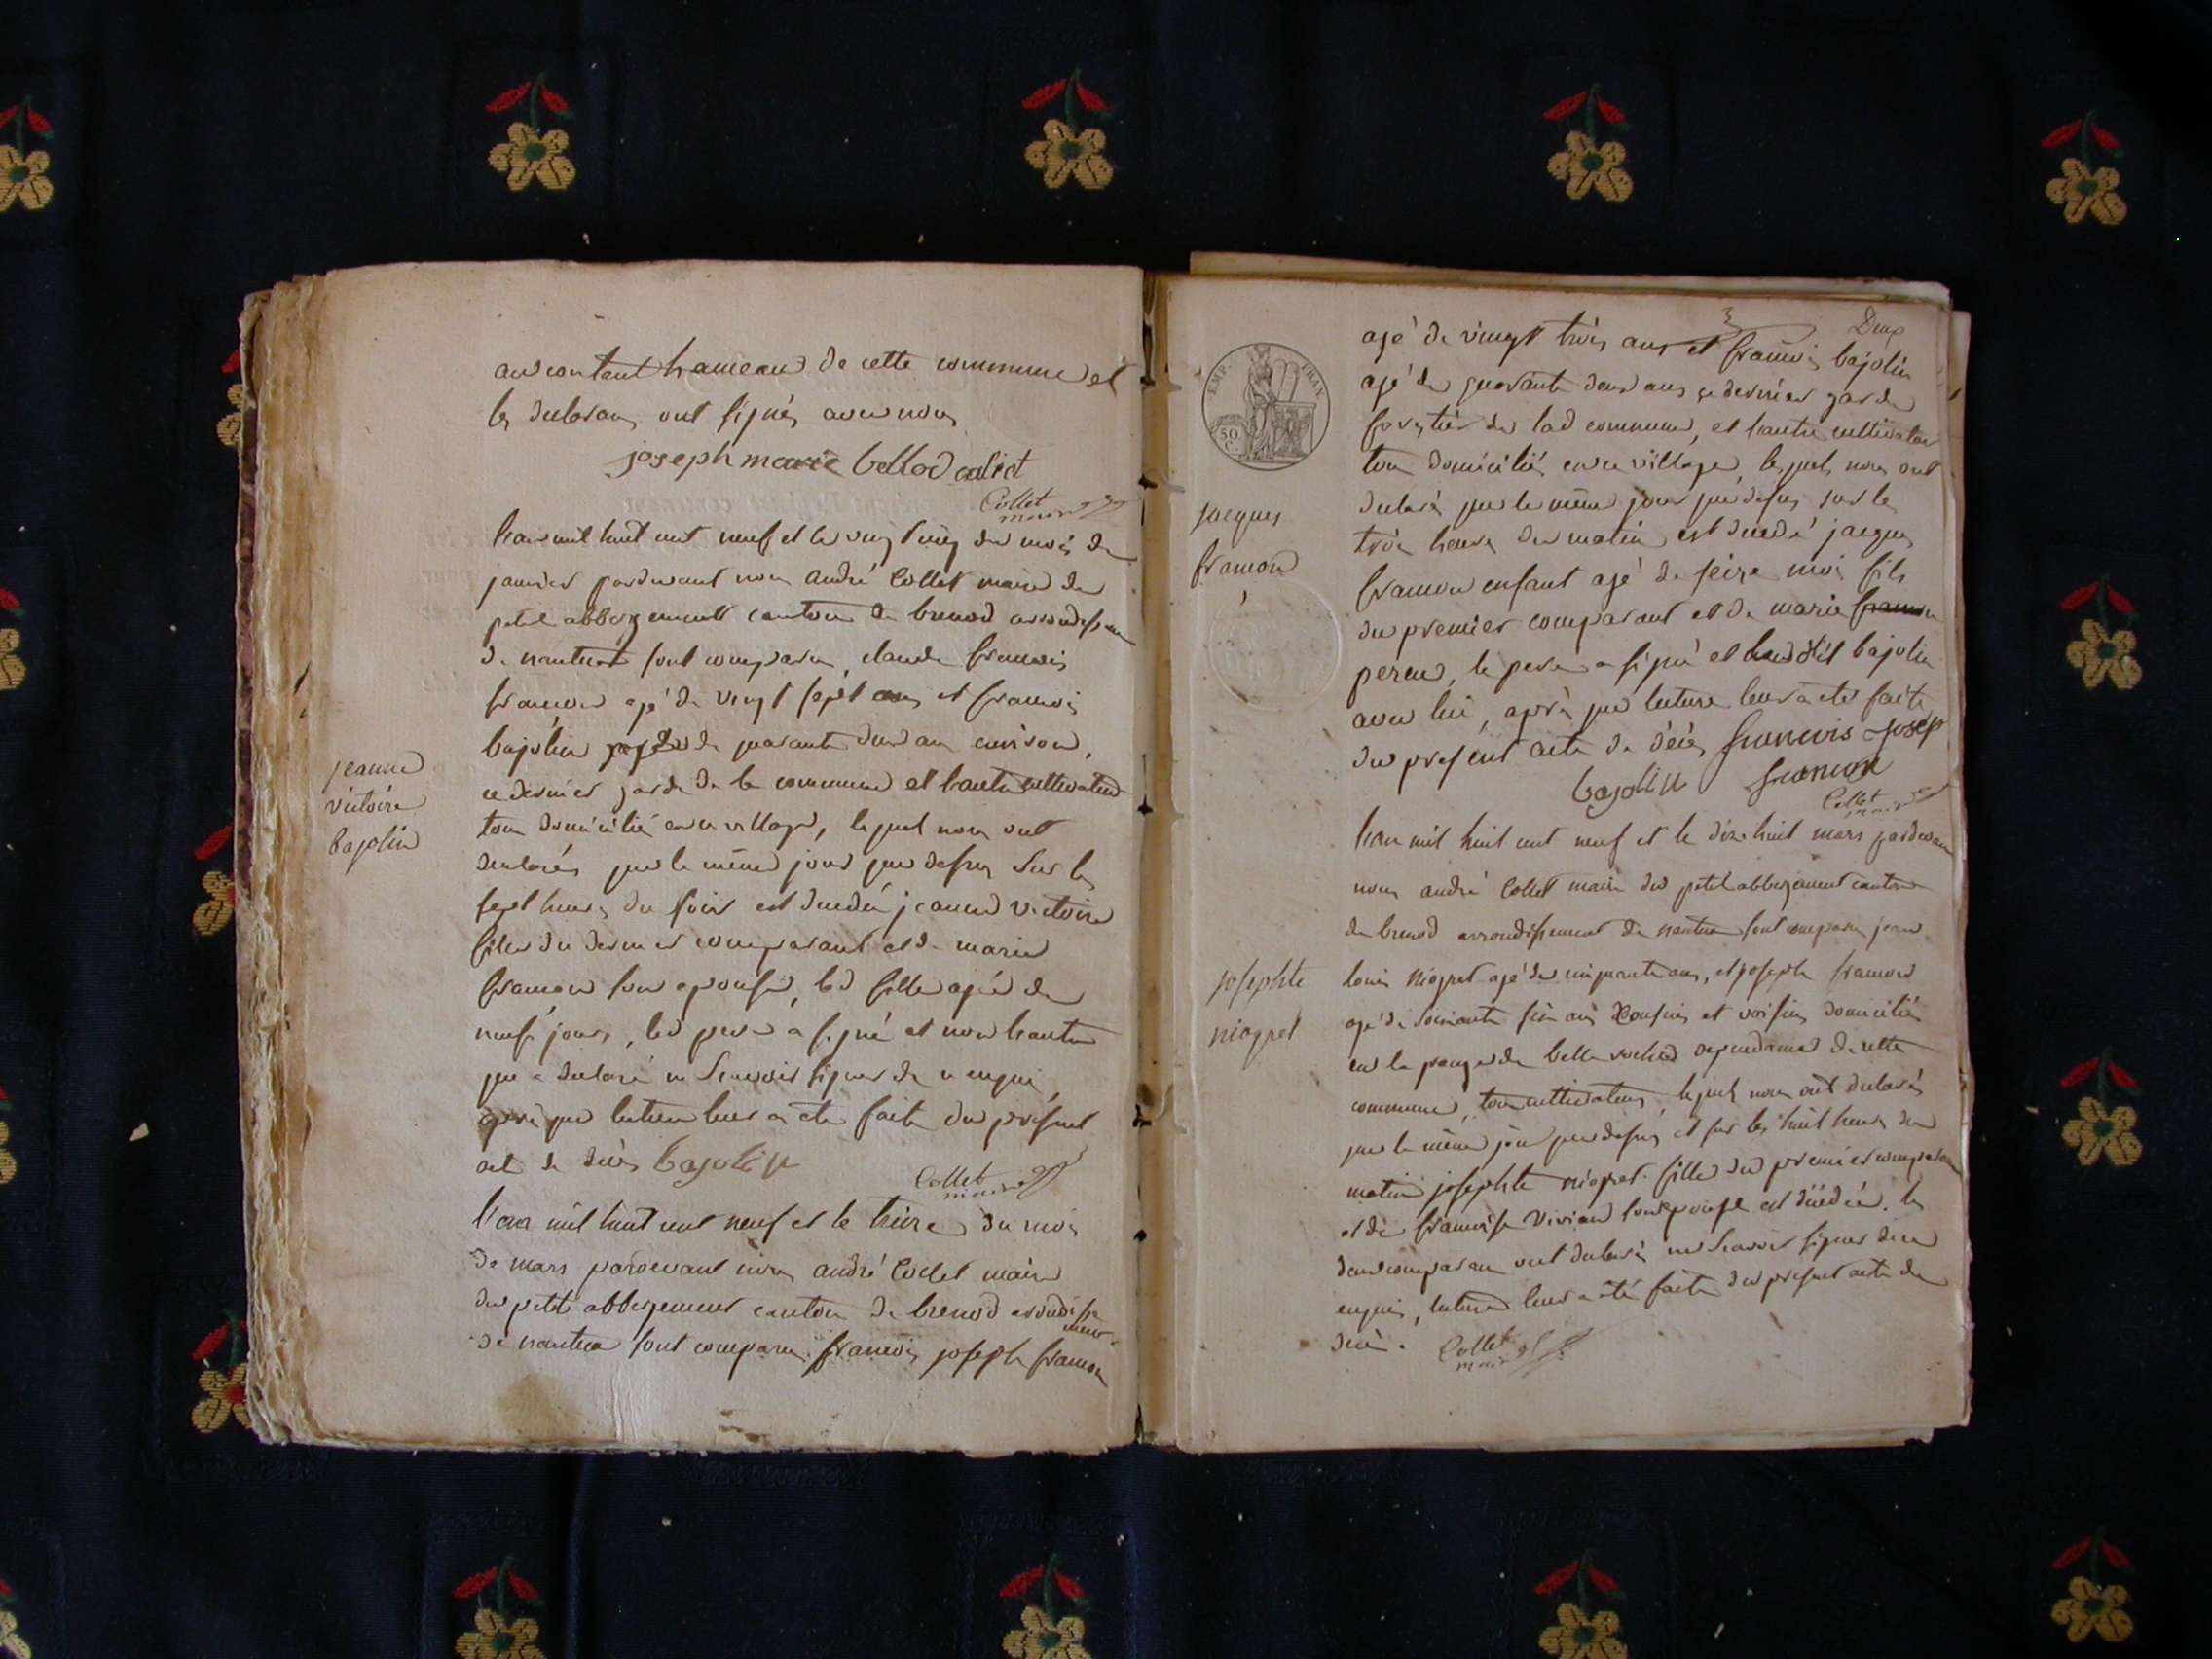 hameau de cette commune et
les declarans ont signés avec nous
joseph marie bellod
Collet
maire
jeanne
victoire
bajolin
L'an mil huit cent neuf et le vingt cinq du mois de
janvier pardevant nous andré Collet maire du
petit abbergement canton de brenod
de nantua sont comparu claude françois
framon agé de vingt sept ans et françois
bajolin de quarante deux ans environ,
ce dernier garde de la commune et l'autre cultivateur
tous domicilié en ce village, lequel nous ont
declarés que le même jour que dessus sur les
sept heures du soir est decedée jeanne victoire
fille du dernier comparant et de marie
framon son epouse, lad fille agée de
neuf jours, led pere a signé et non l'autre
que a declaré ne scavoir signer de ce enquis
après que lecture leur a ete faite du present
acte de decès bajolin
Collet
maire
L'an mil huit cent neuf et le treize du mois
de mars pardevant nous andré Collet maire
du petit abbergement canton de brenod arondisse
ment
de nantua sont comparu françois joseph framon
Deux
EMP. FRAN.
50
C.
agé de vingt trois ans et françois bajolin
agé de quarante deux ans ce dernier garde
forestier de lad commune, et l'autre cultivateur
tous domiciliés en ce village, lesquels nous ont
declarés que le même jour que dessus sur les
trois heures du matin est decedé jacques
jacques
framon
framon enfant agé de seize mois fils
du premier comparant et de marie framon
perou, le pere a signé et bajolin
avec lui, après que lecture leur a ete faite
du present acte de décès françois josep
bajolin framon
Collet
maire
L'an mil huit cent neuf et le dixe huit mars pardevant
nous andré Collet maire du petit abbergement canton
de brenod arrondissement de nantua sont comparu jean
josephte
niogret
louis niogret agé de cinquante ans, et joseph framon
agé de soixante six ans et voisins domiciliés
en la grange de belle roche dependance de cette
commune, tous cultivateurs, lequels nous ont declarés
que le même jour que dessus et sur les huit heures du
matin josephte niogret fille du premier comparant
et de françoise vivian son epouse est décedée. les
deux comparans ont declarés ne scavoir signer de ce
enquis, lecture leur a été faite du present acte de
decès. Collet
maire